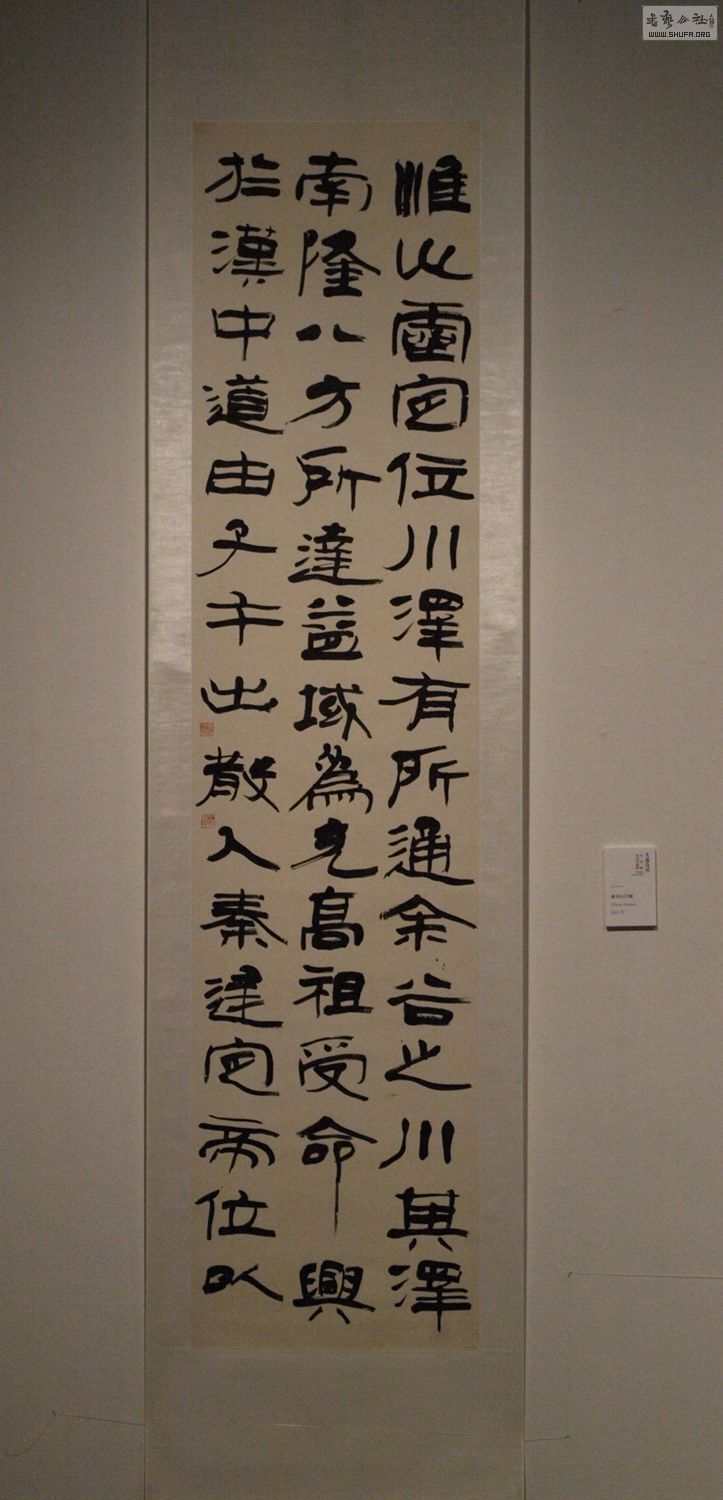 惟坤靈定位川澤有所通余谷之川其澤
南隆八方所達益域為充高祖受命興
於漢中道由子午出散入秦建定帝位以
书艺公社
WWW.SHUFA.ORG